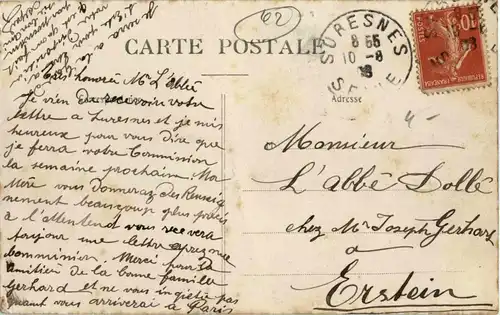 62
CARTE POSTALE
SURESNES
8 35
10 - 8
SEINE
10
REPUBLIQUE FRANÇAISE
Adresse
4 -
Très honoré Mr L'abbé
Je vien de recevoir votre
lettre a Suresnes et je mis
heureux pour vous dire que
je ferra vôtre Commission
la semaine prochain. Ma
Mère vous Donneraz des Renseig
nement beaucoup plus précis
à l'attendent vous recevera
toujour une lettre aprez une
communion. Merci pour la
amitiéz de la bonne famille
Gerhard et ne vous inquietie pas
quant vous arriverai à Paris
Monsieur
L'Abbé Dollé
chez Mr Joseph Gerhard
à
Erstein